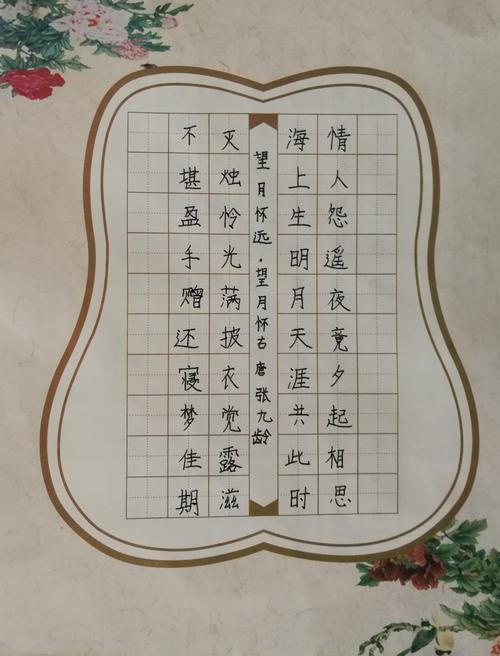 望月怀远·望月怀古 唐 张九龄
海上生明月天涯共此时
情人怨遥夜竟夕起相思
灭烛怜光满披衣觉露滋
不堪盈手赠还寝梦佳期